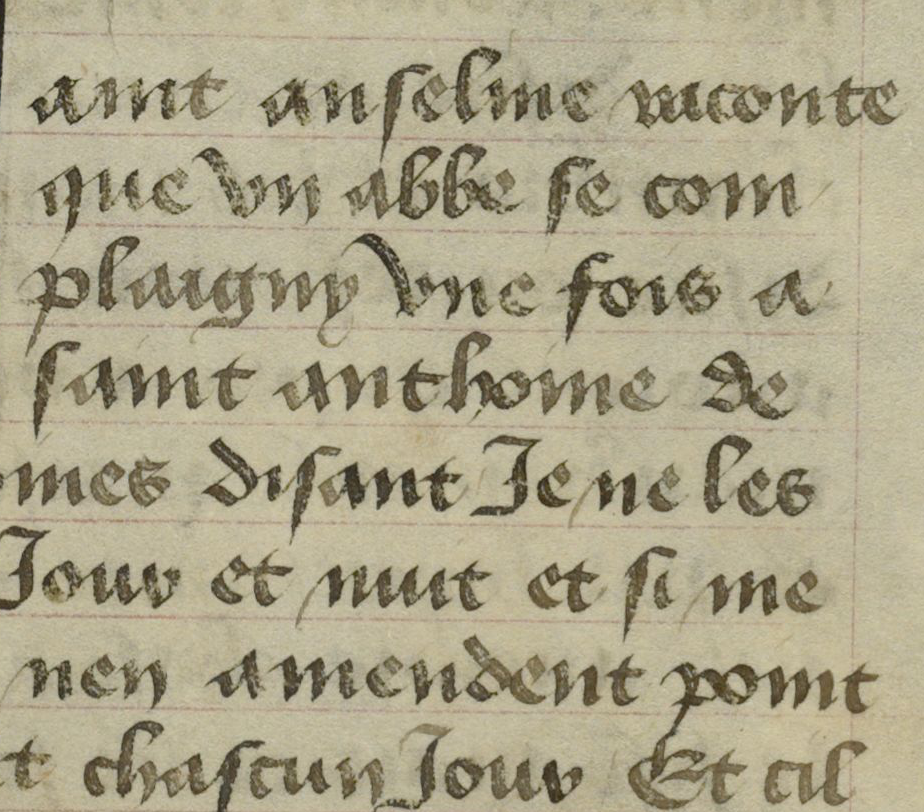 aint anselme raconte
que vn abbe se com
plaigny vne fois a
saint anthoine de
mes disant Je ne les
Jour et nuit et si me
nen amendent point
t chascun Jour Et cil